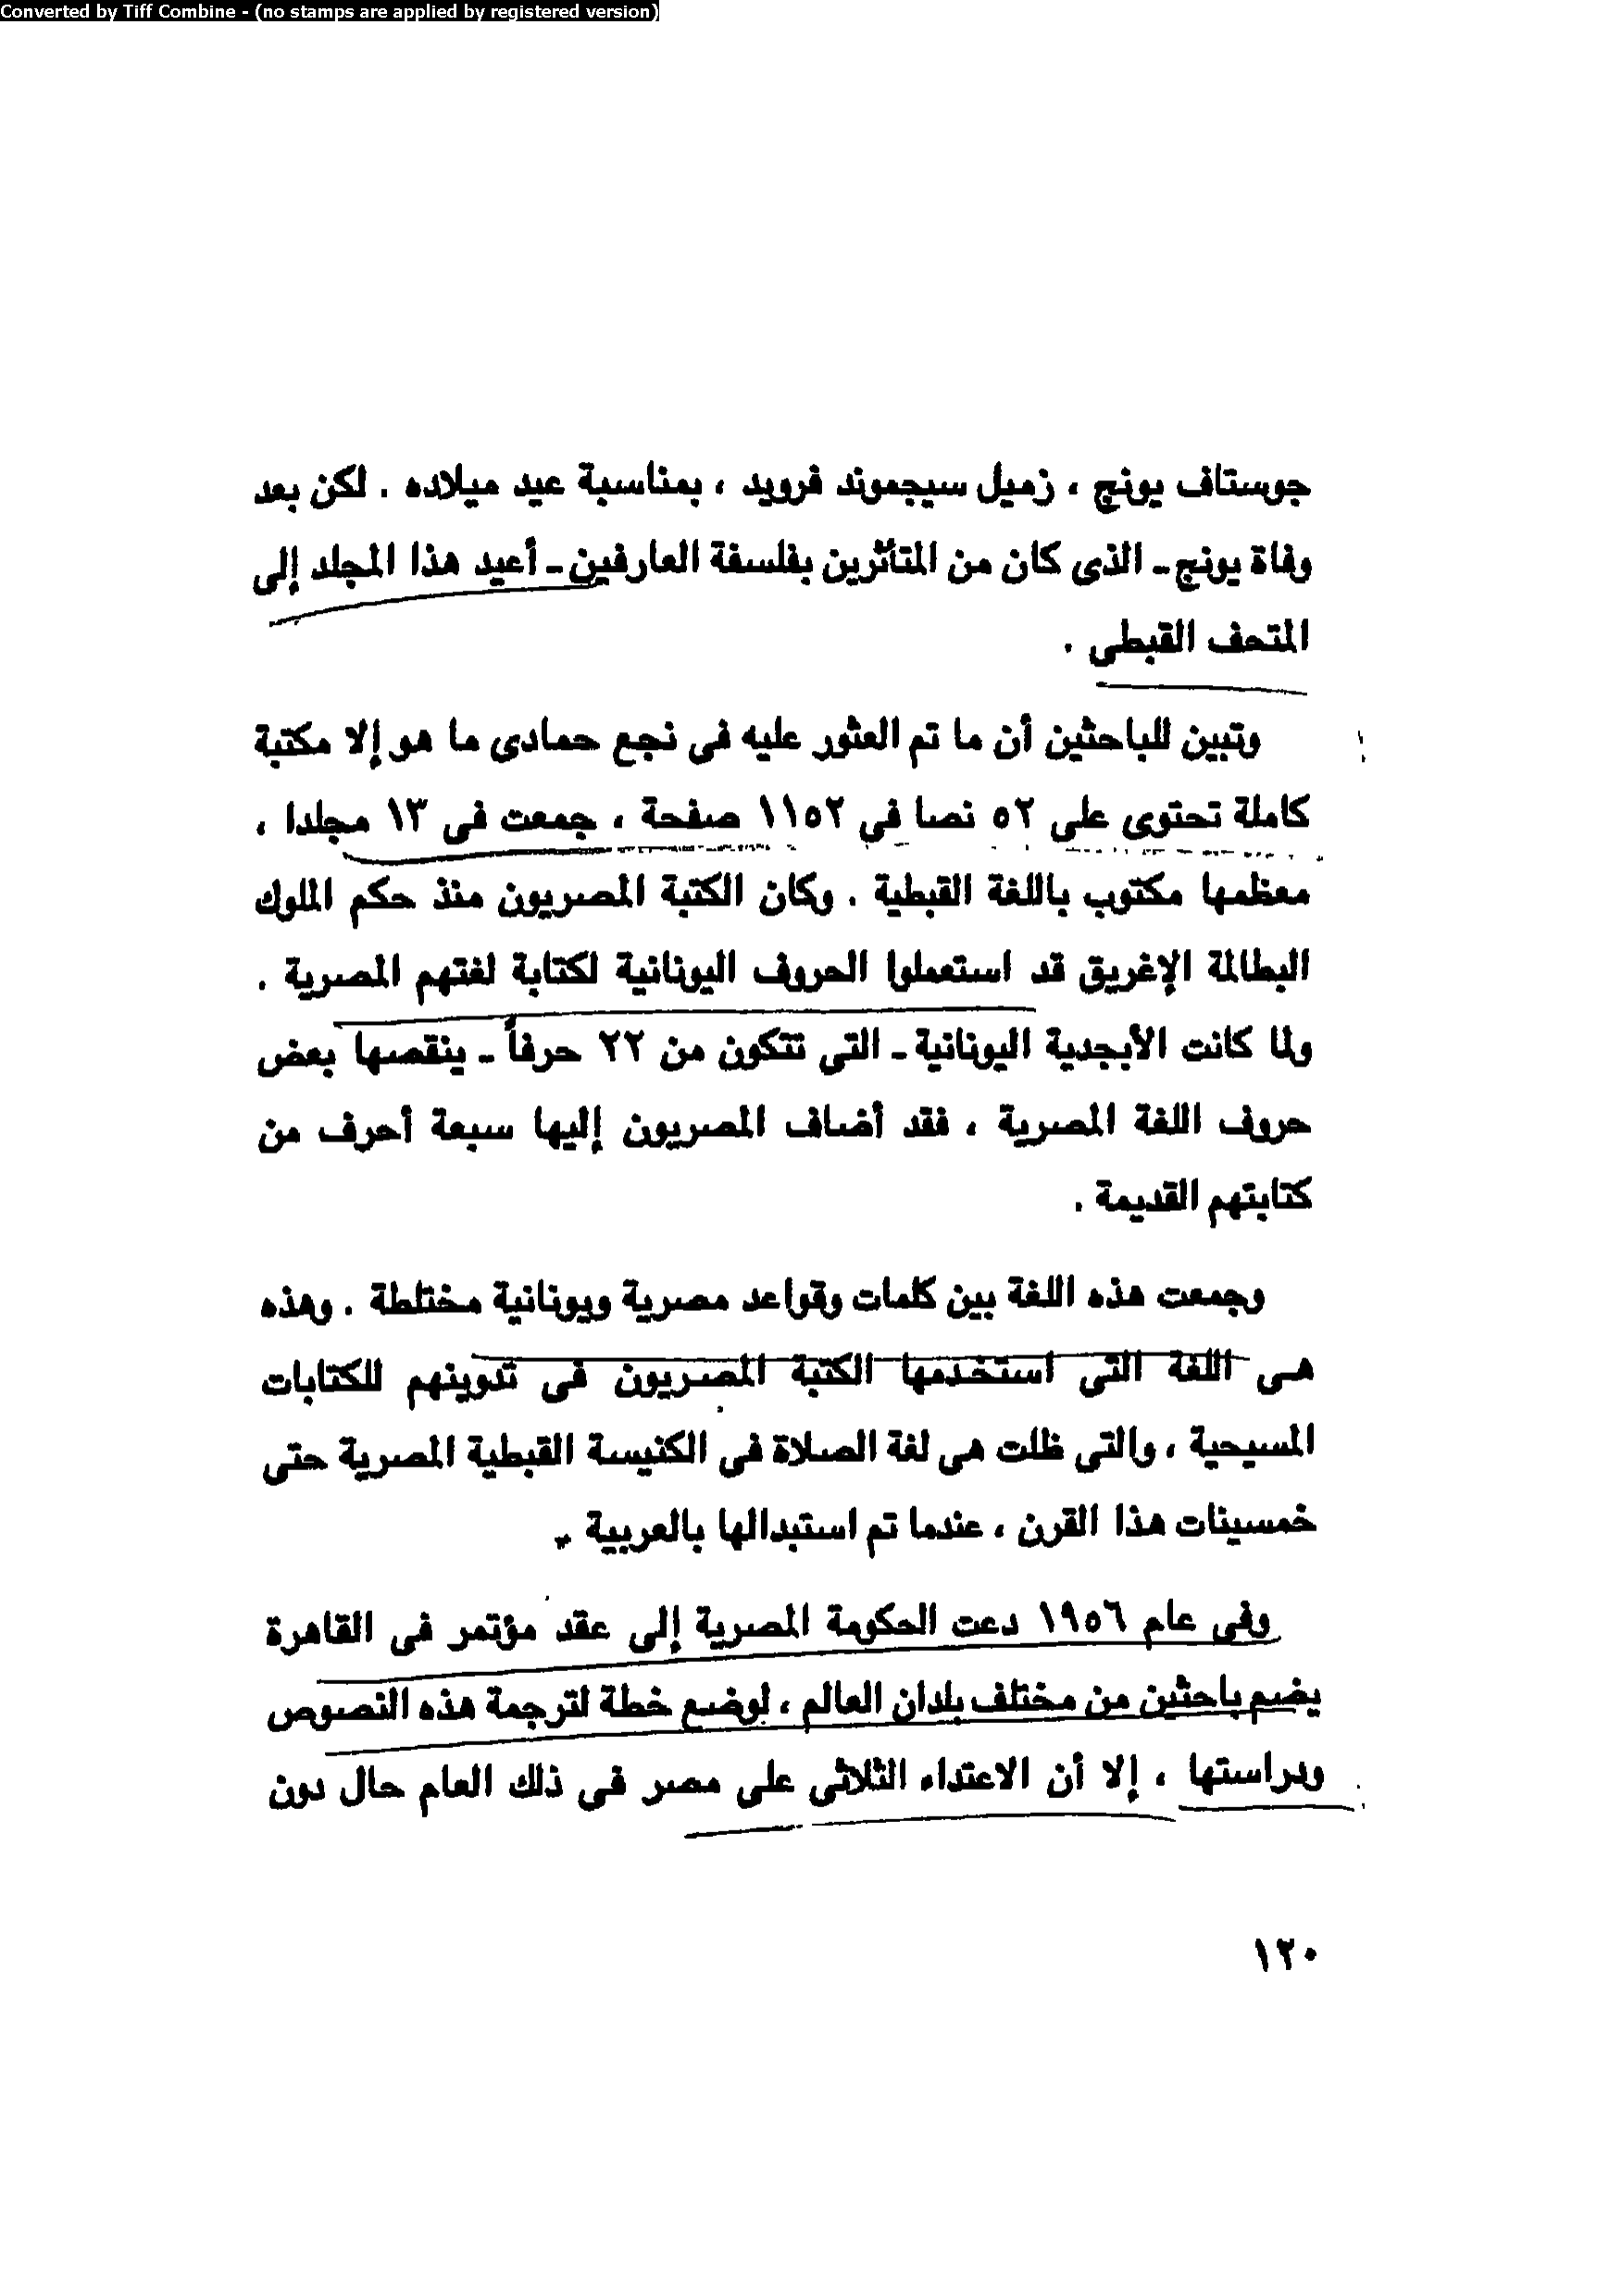 Converted by Tiff Combine - (no stamps are applied by registered version)
جوستاف يونج ، زميل سيجموند فرويد ، بمناسبة عيد ميلاده . لكن بعد
وفاة يونج ـ الذى كان من المتأثرين بفلسفة العارفين ـ أعيد هذا المجلد إلى
المتحف القبطى .
وتبين للباحثين أن ما تم العثور عليه فى نجع حمادى ما هو إلا مكتبة
كاملة تحتوى على ٥٢ نصا في ١١٥٢ صفحة ، جمعت فى ١٣ مجلدا ،
معظمها مكتوب باللغة القبطية . وكان الكتبة المصريون منذ حكم الملوك
البطالمة الإغريق قد استعملوا الحروف اليونانية لكتابة لغتهم المصرية .
ولما كانت الأبجدية اليونانية ـ التى تتكون من ٢٢ حرفاً ـ ينقصها بعض
حروف اللغة المصرية ، فقد أضاف المصريون إليها سبعة أحرف من
كتابتهم القديمة .
وجمعت هذه اللغة بين كلمات وقواعد مصرية ويونانية مختلطة . وهذه
هى اللغة التى استخدمها الكتبة المصريون فى تدوينهم للكتابات
المسيحية ، والتى ظلت هى لغة الصلاة فى الكنيسة القبطية المصرية حتى
خمسينات هذا القرن ، عندما تم استبدالها بالعربية .
وفى عام ١٩٥٦ دعت الحكومة المصرية إلى عقد مؤتمر فى القاهرة
يضم باحثين من مختلف بلدان العالم ، لوضع خطة لترجمة هذه النصوص
ودراستها ، إلا أن الاعتداء الثلاثى على مصر فى ذلك العام حال دون
١٢٠